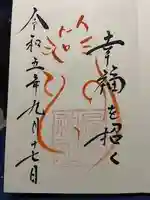 幸福を招く
令和五年九月十七日